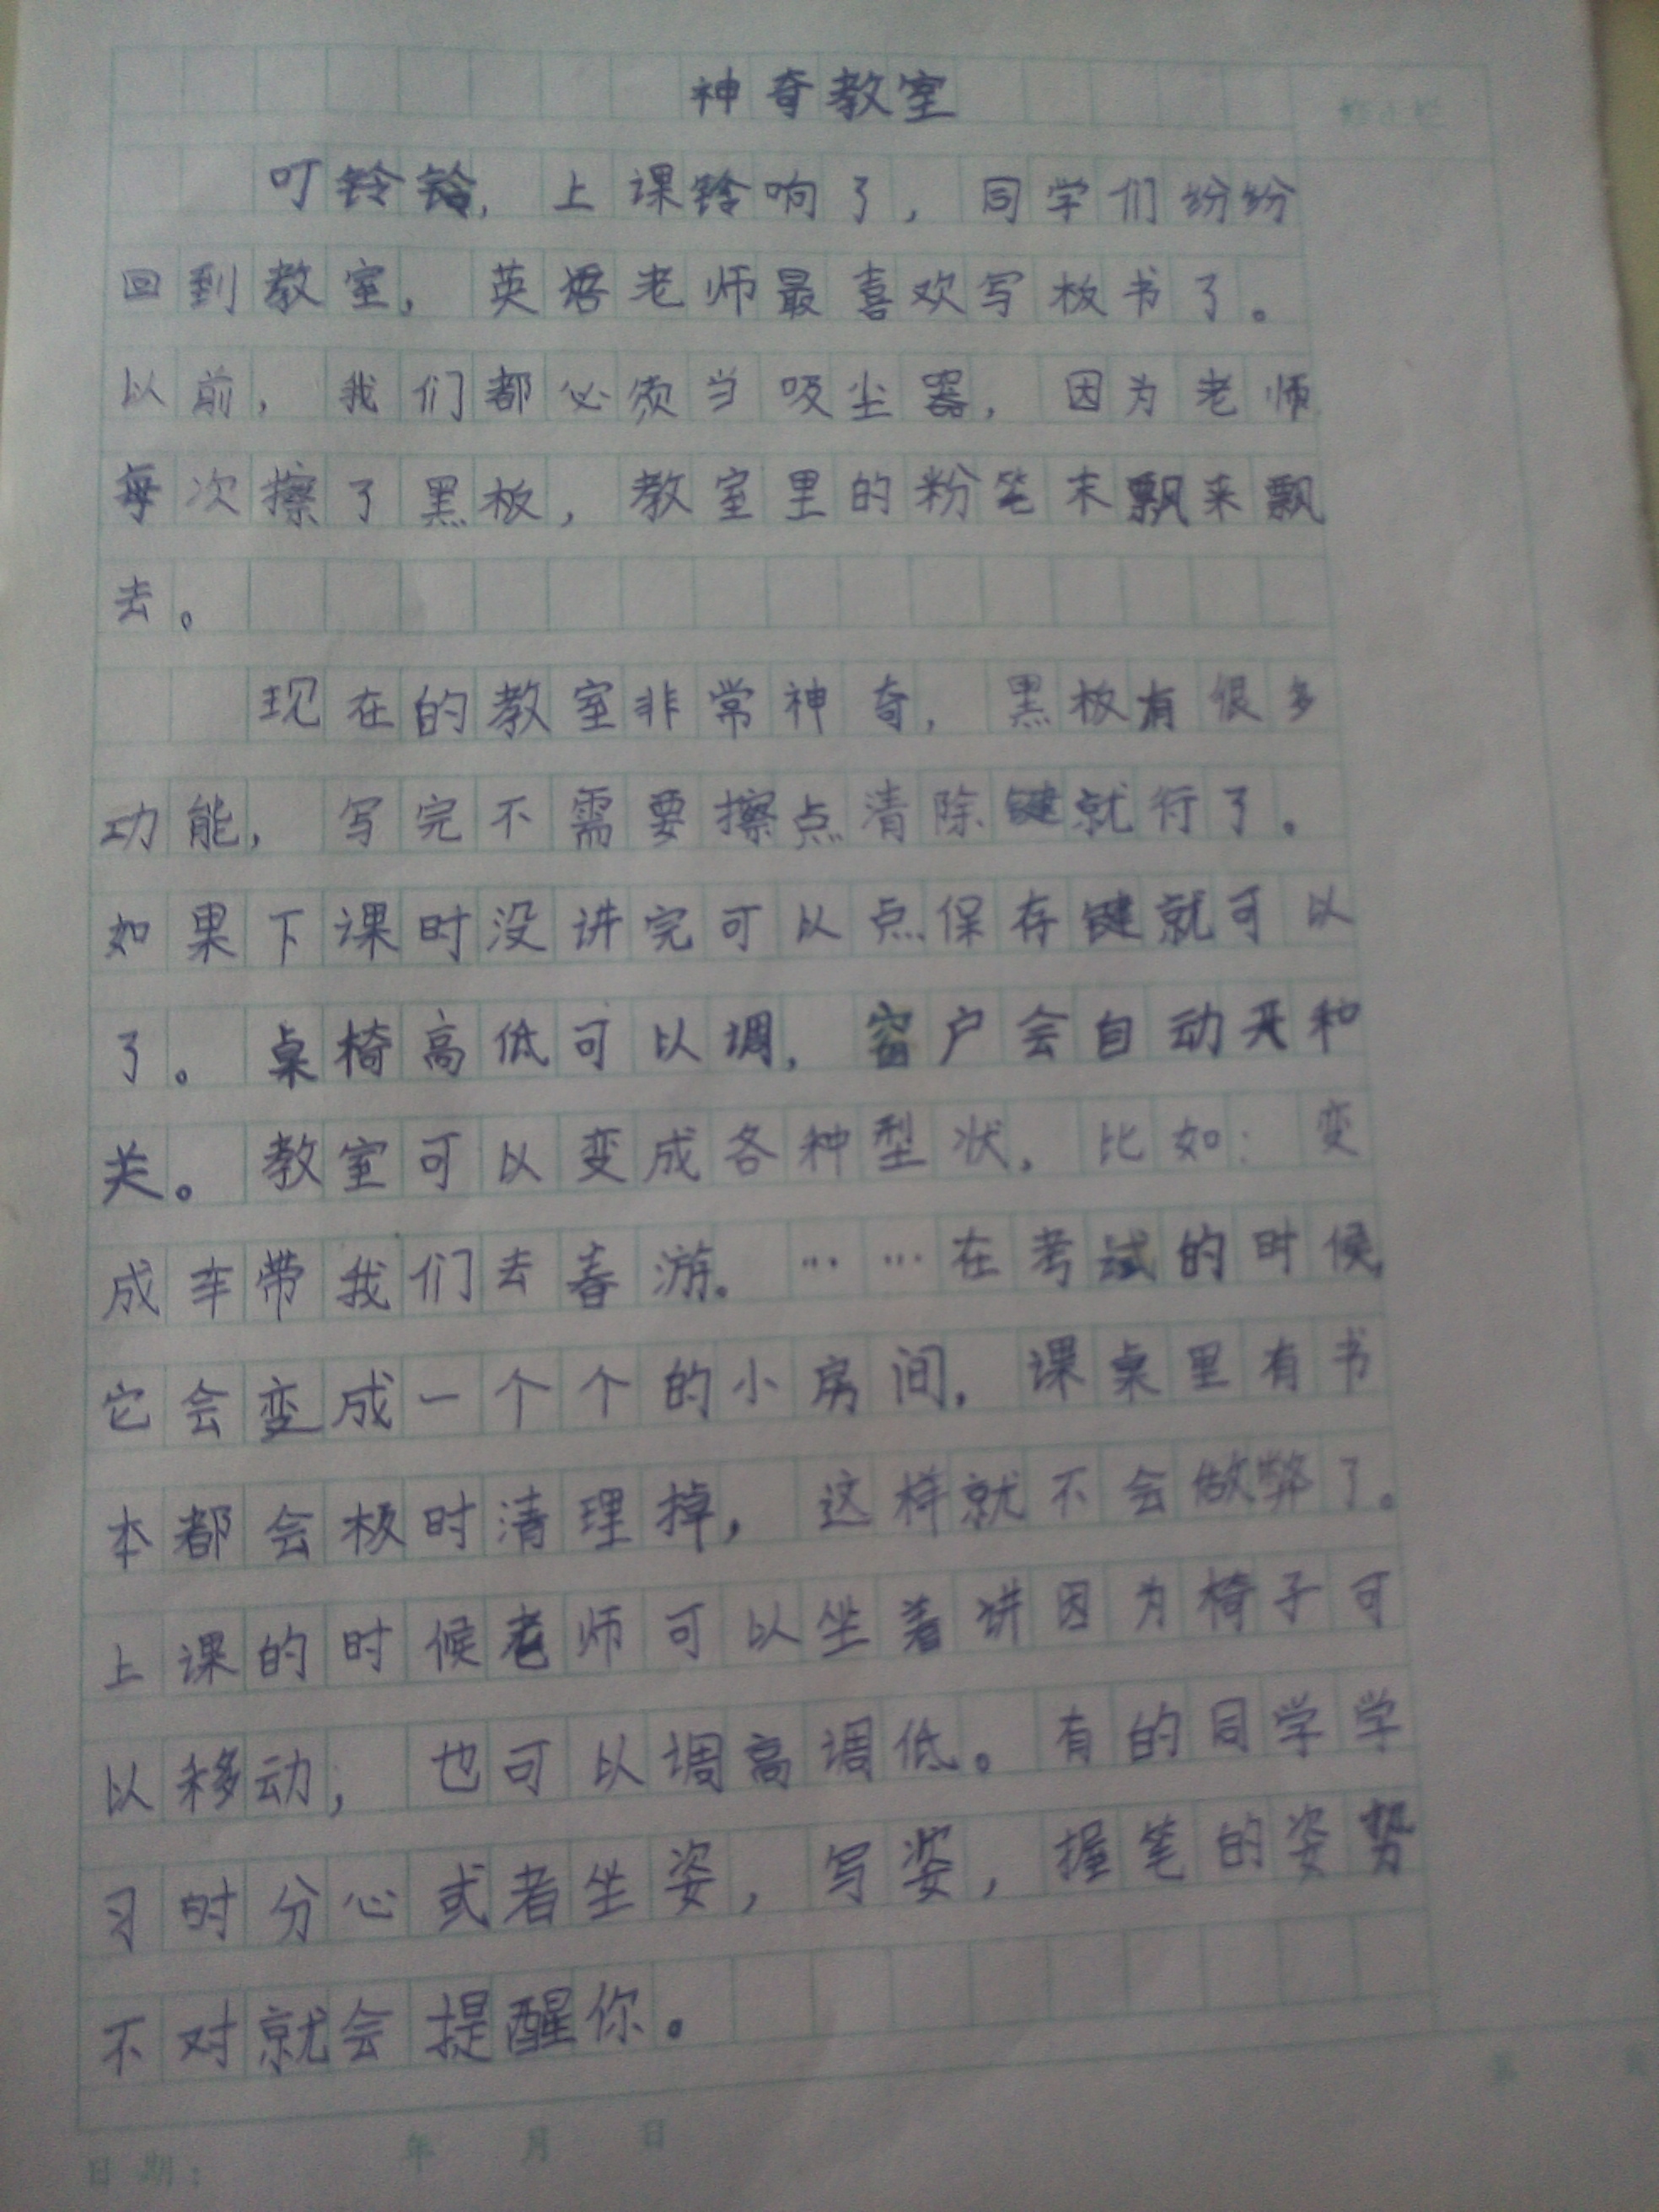 神奇教室
叮铃铃，上课铃响了，同学们纷纷
回到教室，英语老师最喜欢写板书了。
以前，我们都必须当吸尘器，因为老师
每次擦了黑板，教室里的粉笔末飘来飘
去。
现在的教室非常神奇，黑板有很多
功能，写完不需要擦点清除键就行了。
如果下课时没讲完可以点保存键就可以
了。桌椅高低可以调，窗户会自动开和
关。教室可以变成各种型状，比如：变
成车带我们去春游。……在考试的时候，
它会变成一个个的小房间，课桌里有书
本都会极时清理掉，这样就不会做弊了。
上课的时候老师可以坐着讲因为椅子可
以移动，也可以调高调低。有的同学学
习时分心或者坐姿，写姿，握笔的姿势
不对就会提醒你。
日期： 年 月 日